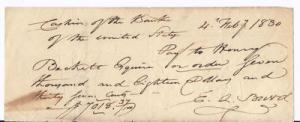 Cashier of the Bank 4th Feby 1830
of the united States
Pay to Henry
Beckett Esquire or order Seven
thousand and Eighteen Dollars and
thirty seven Cents
$7018.37
E. A.